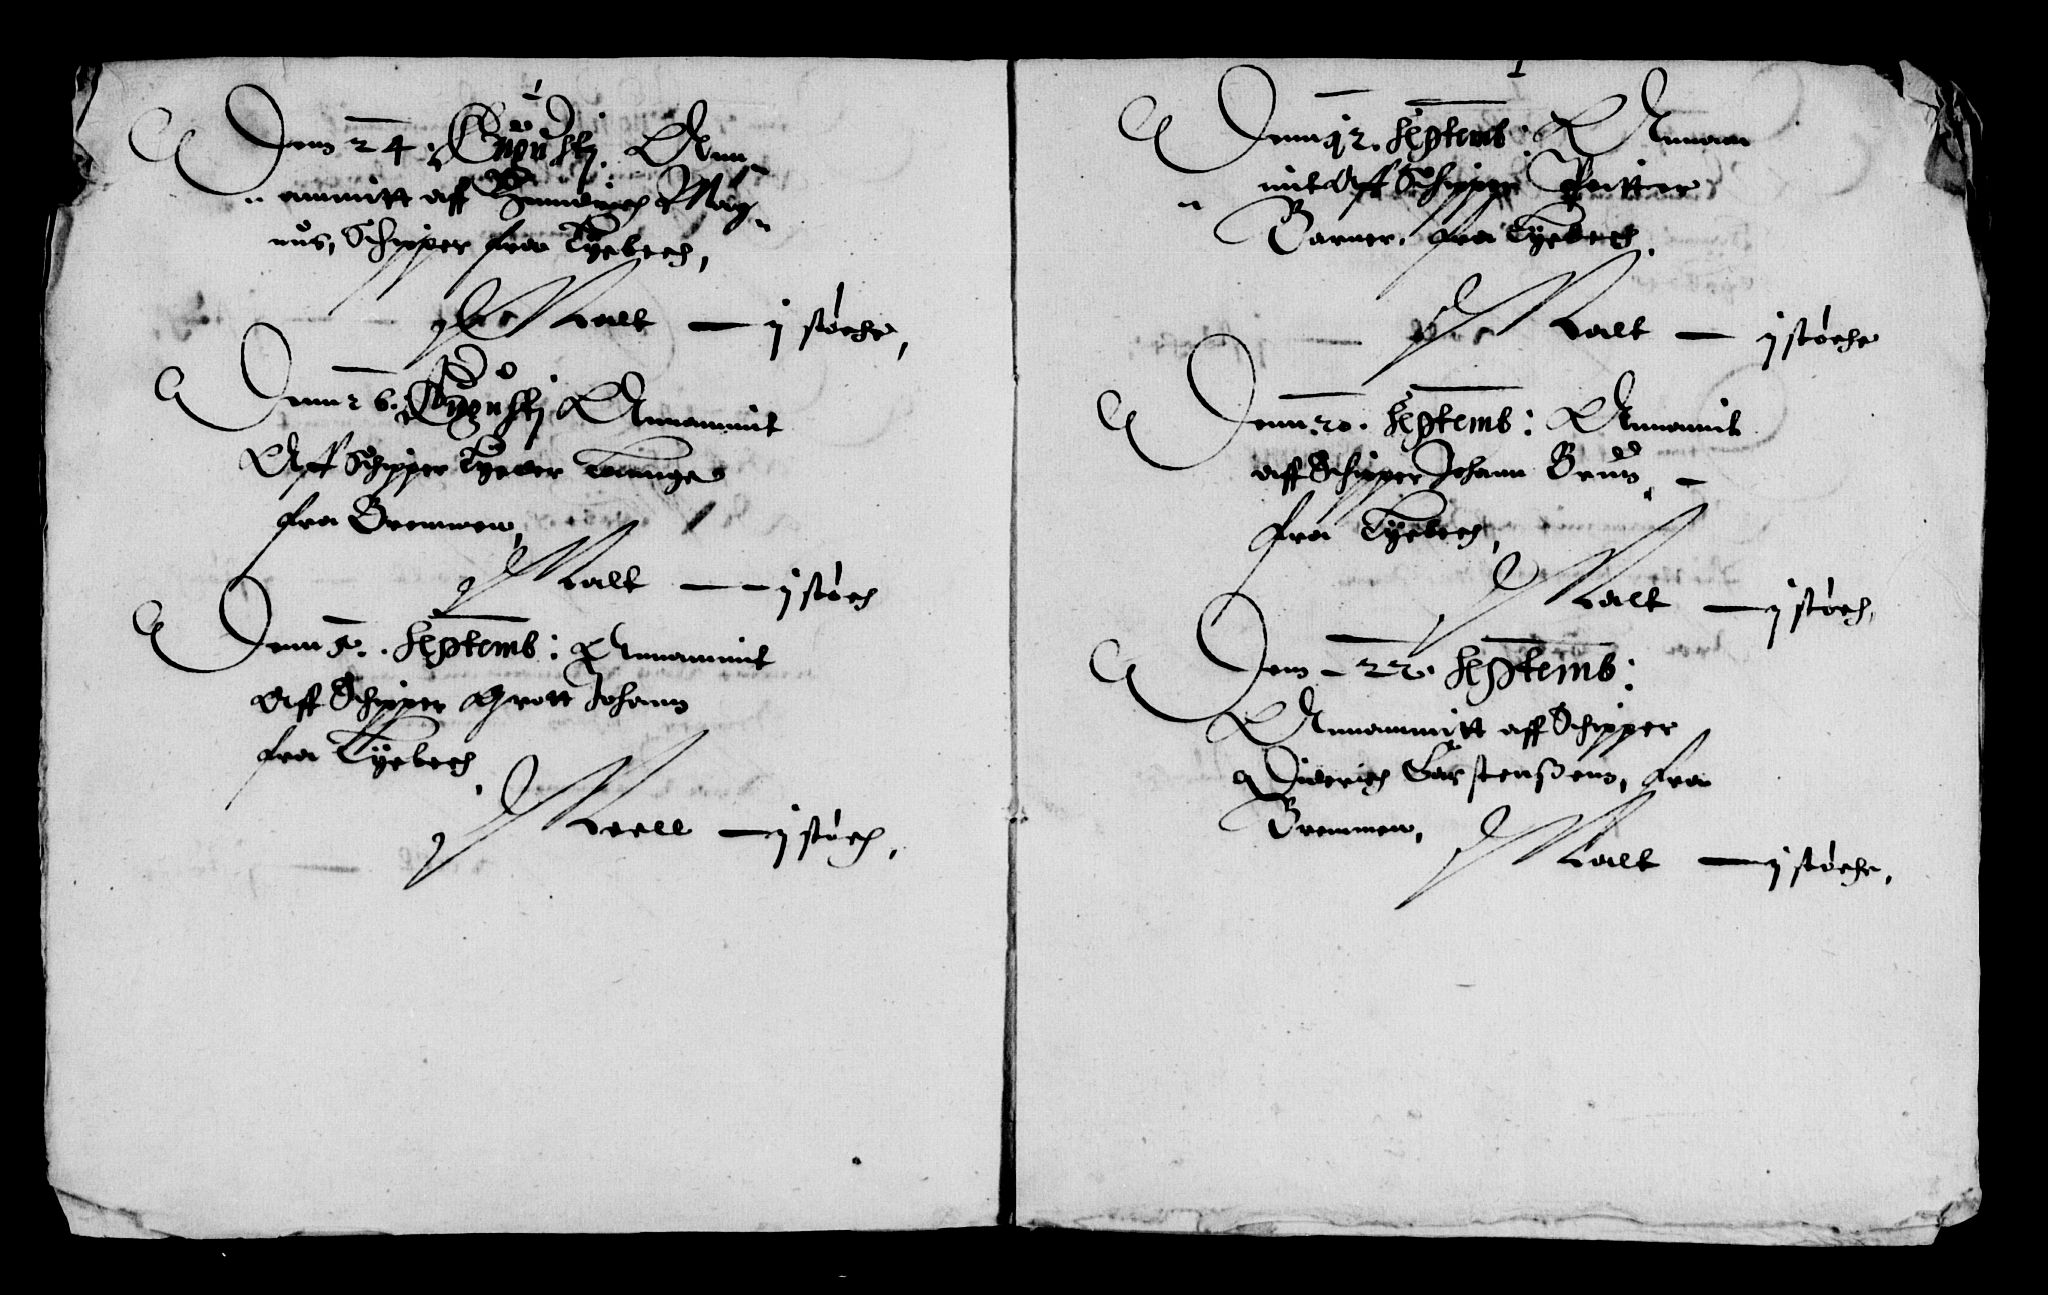 Denn 24 Augusti Ann
ammitt aff Hinndrich Mag
nus, Schipper fraa Lybech,
Malt — j støche,
Denn 26. Augusti Annammit
Aff Schipper
fra Bremmen,
Malt — j støch
Denn 5. Septemb: Annammit
Aff Schipper Grott Johann
fra Lybech
Meell — j støch,
Denn 12. Septemb: Annam
mit Aff Schipper Peitter
Barner, fra Lybech,
Malt — j støche
Denn 20. Septemb: Annammit
aff Schipper Johann Brun
fra Lybech,
Malt — j støch,
Denn 22. Septemb:
Annammitt aff Schipper
Diderich Carstenßenn, fra
Bremmen,
Malt — j støche,